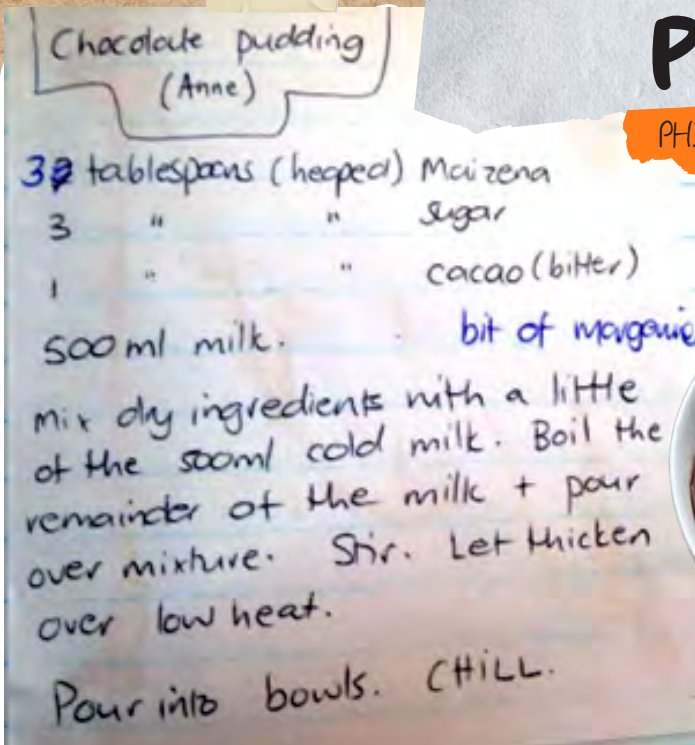 Chocolate pudding
(Anne)
3 tablespoons (heaped) Maizena
3 " " sugar
1 " " cacao (bitter)
500 ml milk.
bit of
mix dry ingredients with a little
of the 500ml cold milk. Boil the
remainder of the milk + pour
over mixture. Stir. Let thicken
over low heat.
Pour into bowls. CHILL.
P
PH